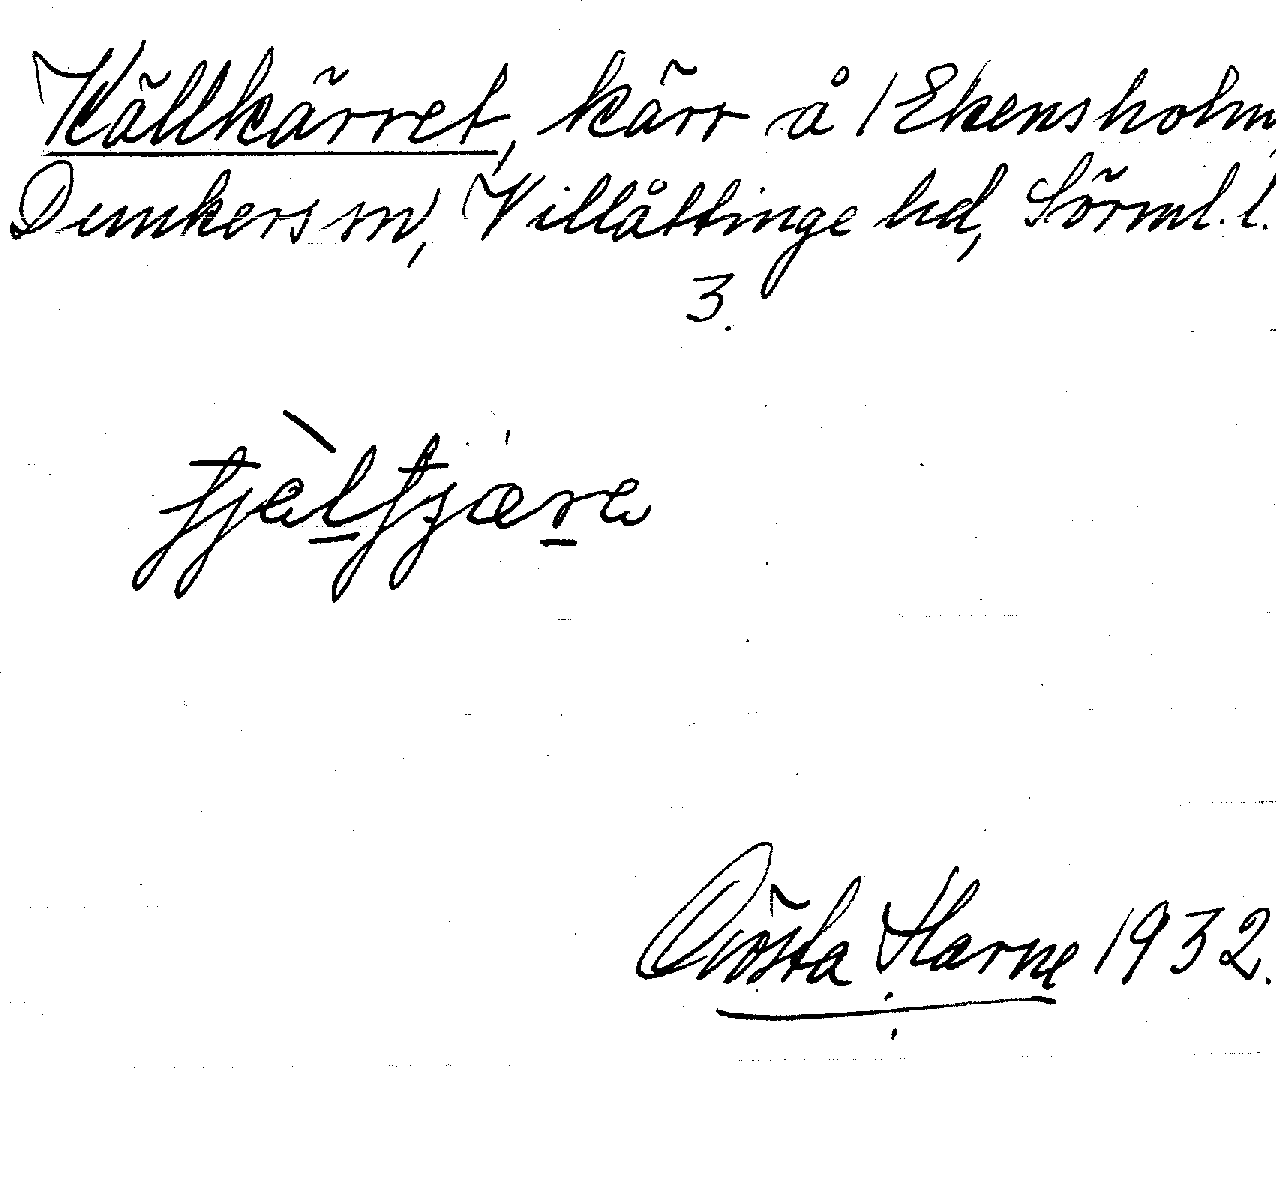 Källkärret, kärr å 1 Ekensholm,
Dunkers sn, Villåttinge hd, Sörml. l.
3.
Gösta Harne 1932.